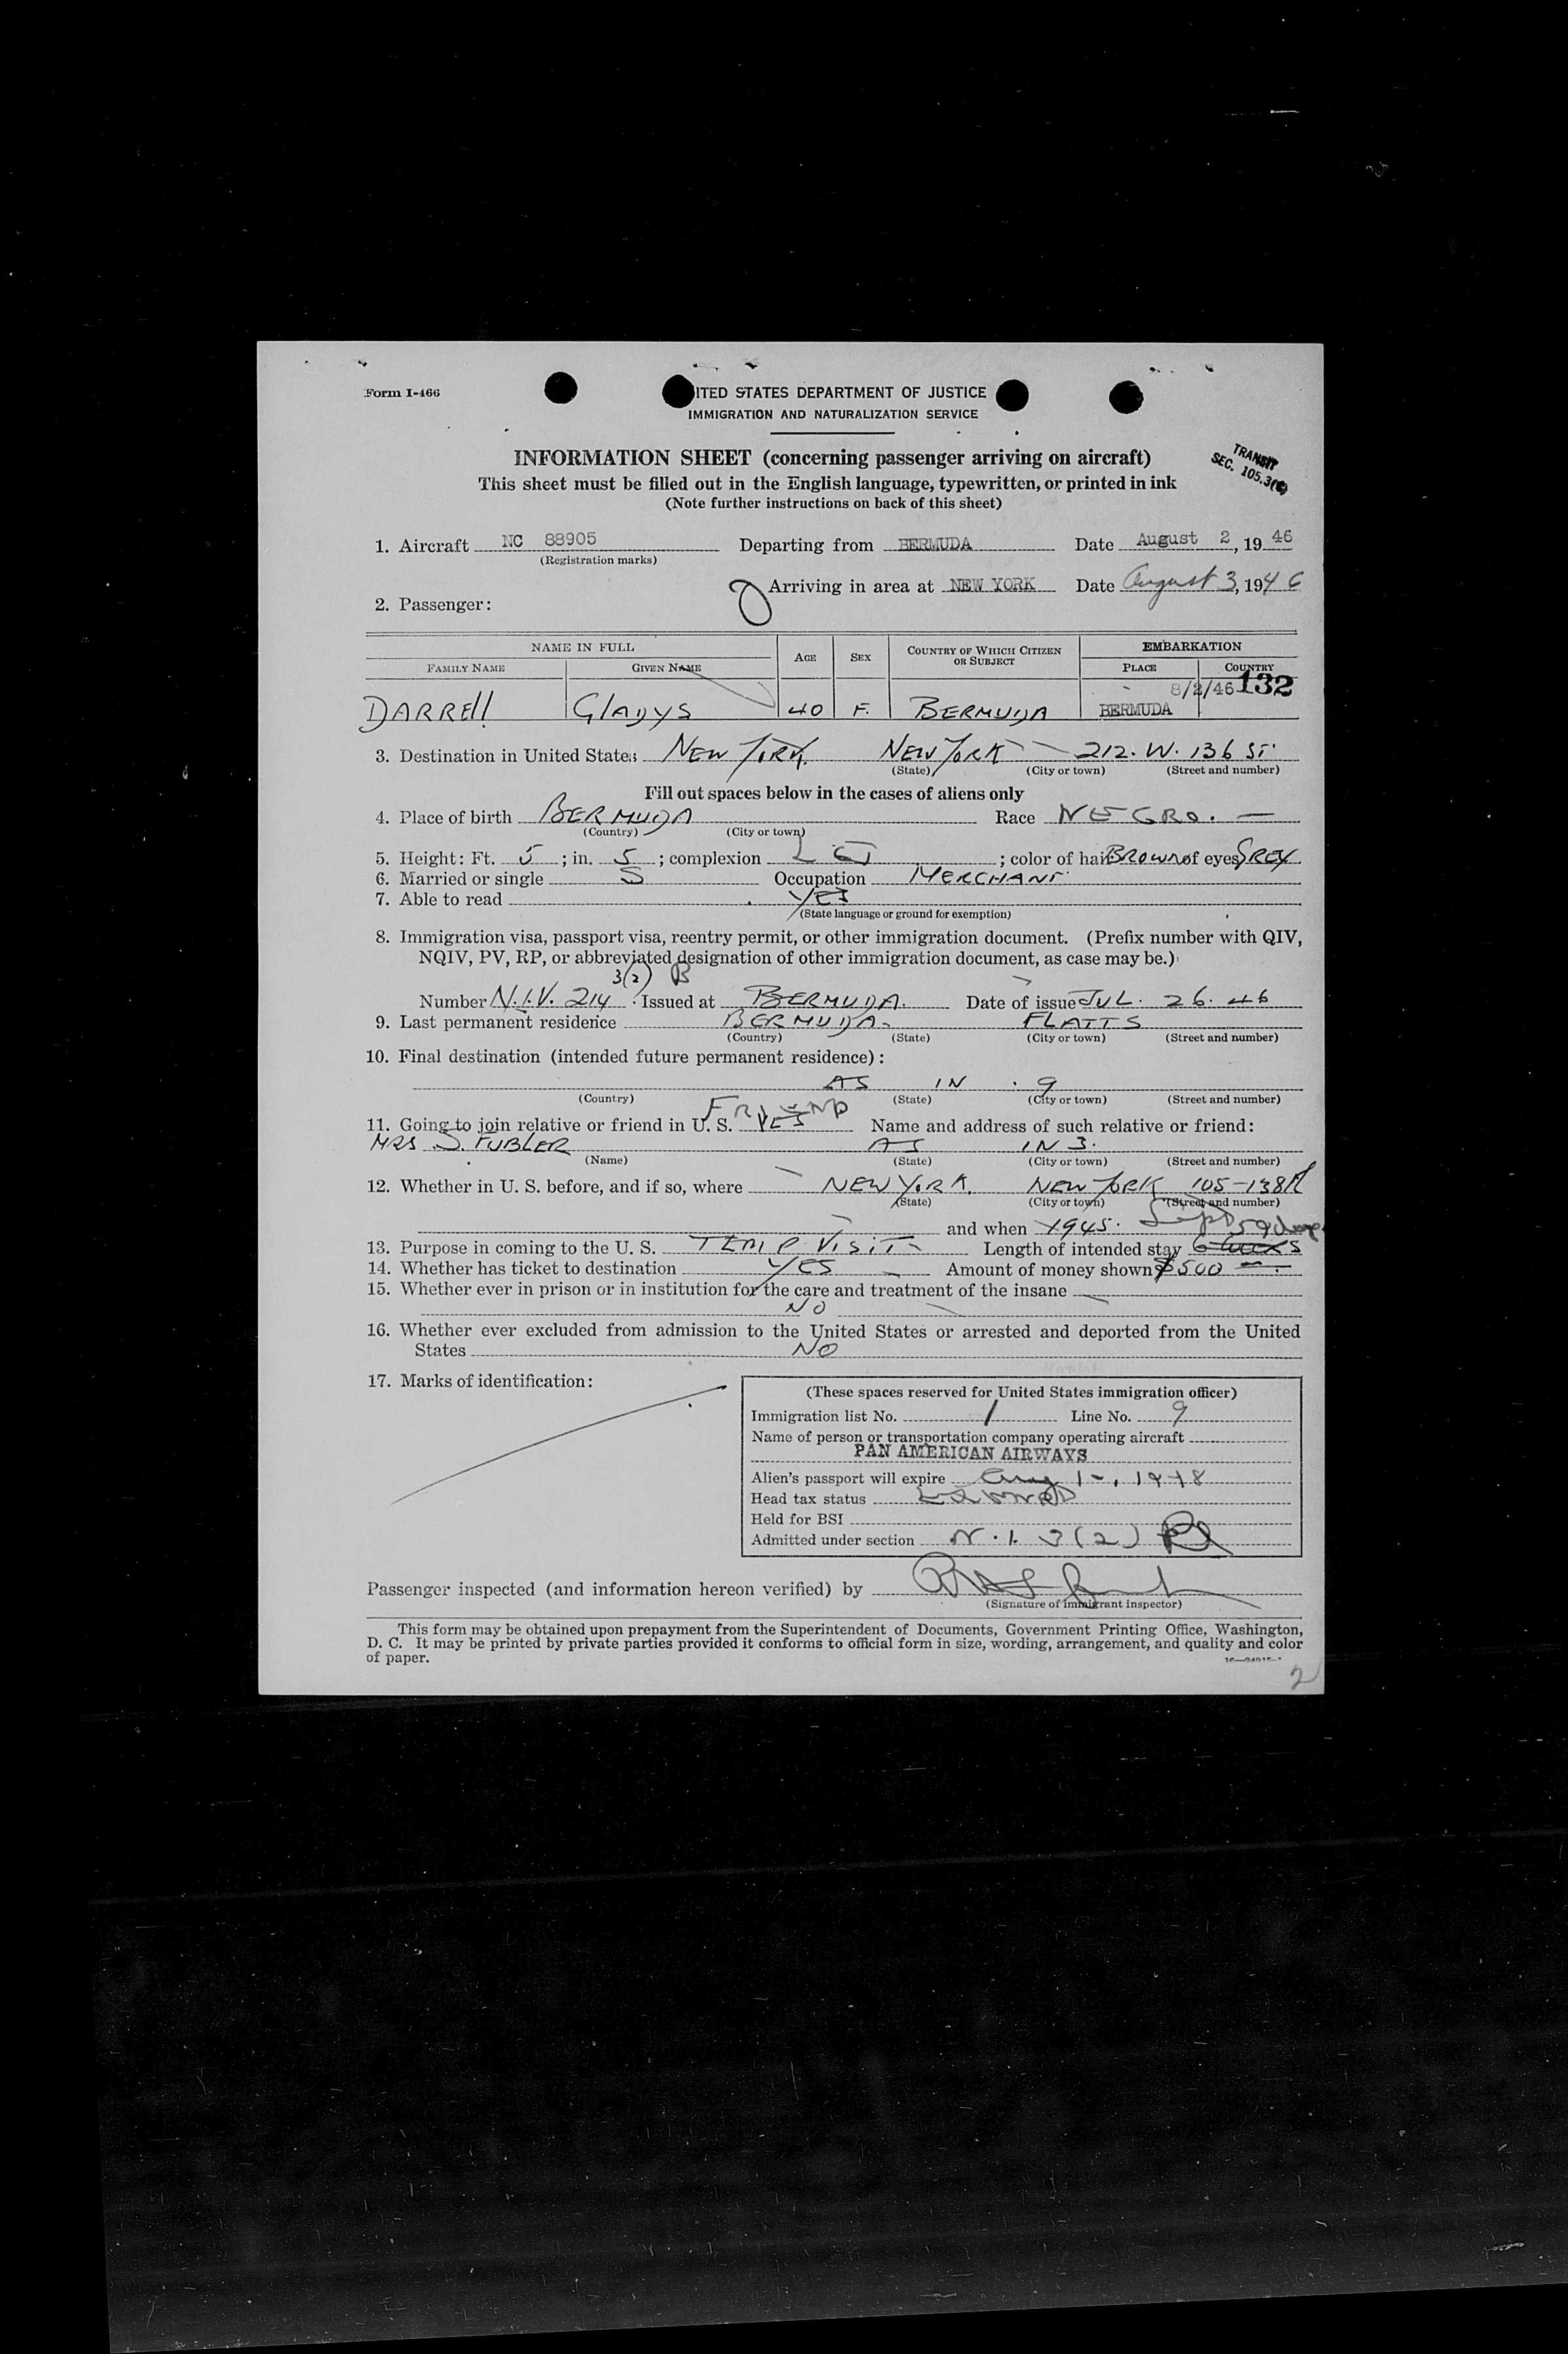 Form I-466
ITED STATES DEPARTMENT OF JUSTICE
IMMIGRATION AND NATURALIZATION SERVICE
INFORMATION SHEET (concerning passenger arriving on aircraft)
TRANSIT
SEC. 105.3
This sheet must be filled out in the English language, typewritten, or printed in ink
(Note further instructions on back of this sheet)
1. Aircraft NC 88905 Departing from BERMUDA Date August 2, 19 46
(Registration marks)
Arriving in area at NEW YORK Date August 3, 1946
2. Passenger:
NAME IN FULL AGE SEX COUNTRY OF WHICH CITIZEN OR SUBJECT EMBARKATION
FAMILY NAME GIVEN NAME PLACE COUNTRY
8/2/46 132
DARRELL GLADYS 40 F. BERMUDA BERMUDA
3. Destination in United States NEW YORK NEW YORK 212. W. 136 ST.
(State) (City or town) (Street and number)
Fill out spaces below in the cases of aliens only
4. Place of birth BERMUDA Race NEGRO. —
(Country) (City or town)
5. Height: Ft. 5 ; in. 5 ; complexion ; color of hair BROWN of eyes GREY
6. Married or single S Occupation MERCHANT
7. Able to read YES
(State language or ground for exemption)
8. Immigration visa, passport visa, reentry permit, or other immigration document. (Prefix number with QIV,
NQIV, PV, RP, or abbreviated designation of other immigration document, as case may be.)
3(2) B
Number N.I.V. 214 Issued at BERMUDA. Date of issue JUL. 26. 46
9. Last permanent residence BERMUDA. FLATTS
(Country) (State) (City or town) (Street and number)
10. Final destination (intended future permanent residence):
AS IN . 9
(Country) (State) (City or town) (Street and number)
FRIEND
11. Going to join relative or friend in U. S. YES Name and address of such relative or friend:
MRS S. TUBLER AS IN 3.
(Name) (State) (City or town) (Street and number)
12. Whether in U. S. before, and if so, where NEW YORK NEW YORK 105-138
(State) (City or town) (Street and number)
and when 1945. Sept 59 days
13. Purpose in coming to the U. S. TEMP VISIT Length of intended stay 6
14. Whether has ticket to destination YES Amount of money shown $500
15. Whether ever in prison or in institution for the care and treatment of the insane
NO
16. Whether ever excluded from admission to the United States or arrested and deported from the United
States NO
17. Marks of identification:
(These spaces reserved for United States immigration officer)
Immigration list No. 1 Line No. 9
Name of person or transportation company operating aircraft
PAN AMERICAN AIRWAYS
Alien's passport will expire Aug 1-, 1948
Head tax status
Held for BSI
Admitted under section N.I. 3(2)
Passenger inspected (and information hereon verified) by
(Signature of immigrant inspector)
This form may be obtained upon prepayment from the Superintendent of Documents, Government Printing Office, Washington,
D. C. It may be printed by private parties provided it conforms to official form in size, wording, arrangement, and quality and color
of paper.
2